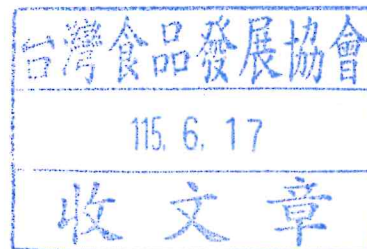 台灣食品發展協會
115. 6. 17
收文章